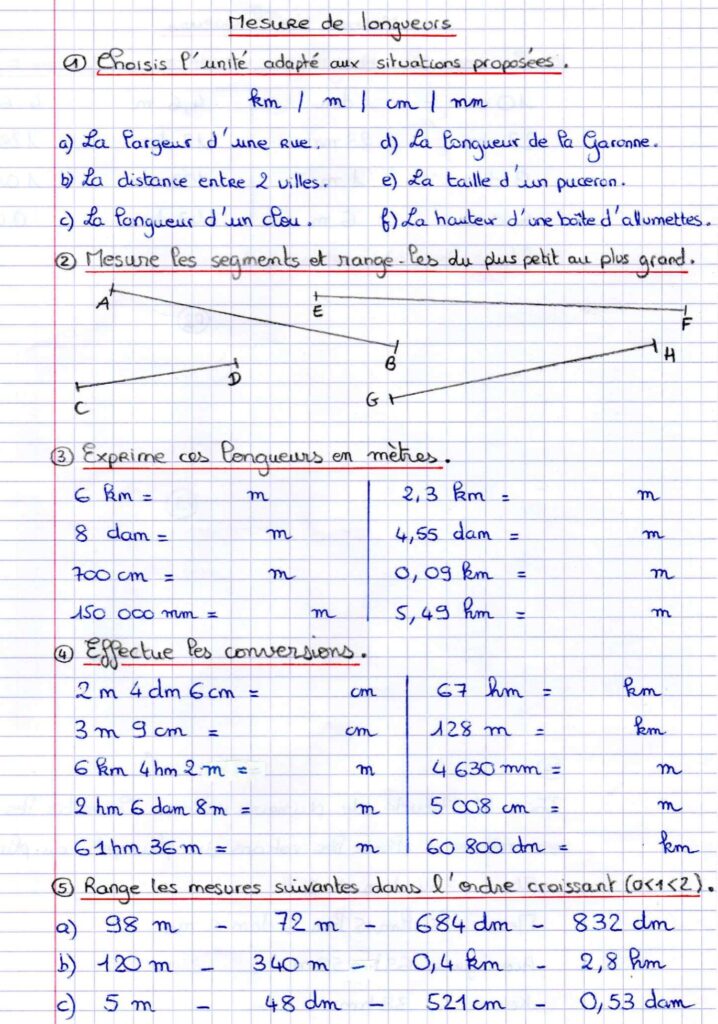 Mesure de longueurs
① Choisis l'unité adapté aux situations proposées.
km / m / cm / mm
a) La largeur d'une rue. d) La longueur de la Garonne.
b) La distance entre 2 villes. e) La taille d'un puceron.
c) La longueur d'un clou. f) La hauteur d'une boîte d'allumettes.
② Mesure les segments et range-les du plus petit au plus grand.
A B
E F
C D
G H
③ Exprime ces longueurs en mètres.
6 km = m 2,3 km = m
8 dam = m 4,55 dam = m
700 cm = m 0,09 km = m
150 000 mm = m 5,49 hm = m
④ Effectue les conversions.
2 m 4 dm 6 cm = cm 67 hm = km
3 m 9 cm = cm 128 m = km
6 km 4 hm 2 m = m 4 630 mm = m
2 hm 6 dam 8 m = m 5 008 cm = m
61 hm 36 m = m 60 800 dm = km
⑤ Range les mesures suivantes dans l'ordre croissant (0<1<2).
a) 98 m - 72 m - 684 dm - 832 dm
b) 120 m - 340 m - 0,4 km - 2,8 hm
c) 5 m - 48 dm - 521 cm - 0,53 dam